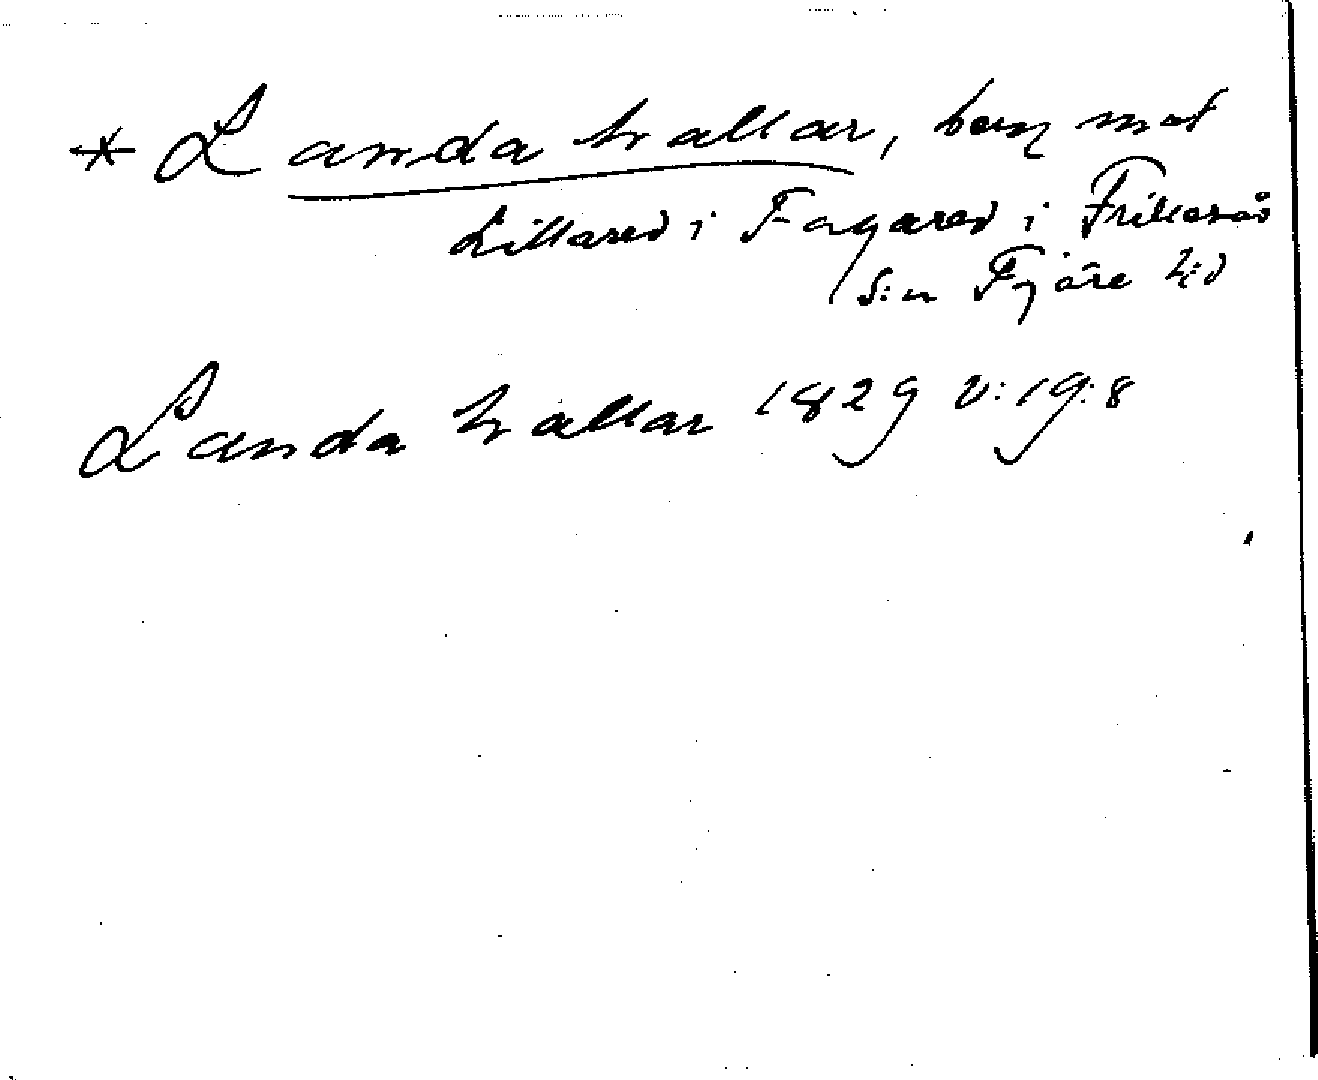 * Landa hallar, berg mot
Lillared i Fagared i Frillesås
s:n Fjäre h:d
Landa hallar 1829 v:19:8